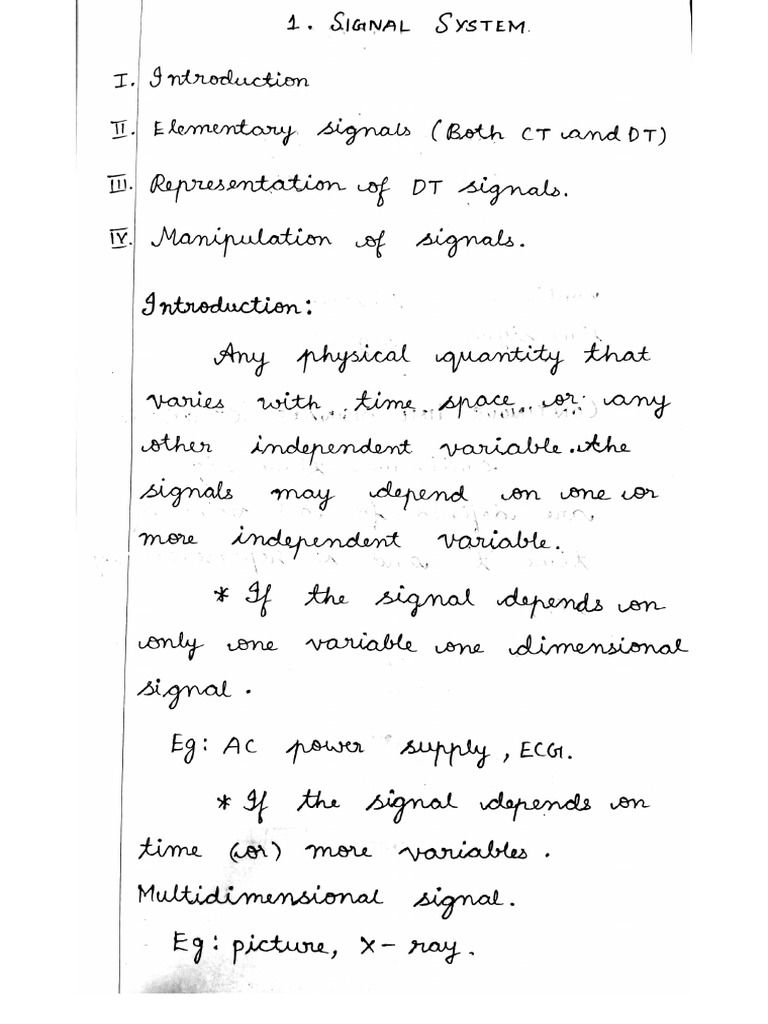 1. SIGNAL SYSTEM.
I. Introduction
II. Elementary signals (Both CT and DT)
III. Representation of DT signals.
IV. Manipulation of signals.
Introduction:
Any physical quantity that
varies with time space or any
other independent variable. the
signals may depend on one or
more independent variable.
* If the signal depends on
only one variable one dimensional
signal.
Eg: AC power supply, ECG.
* If the signal depends on
time (or) more variables.
Multidimensional signal.
Eg: picture, X-ray.